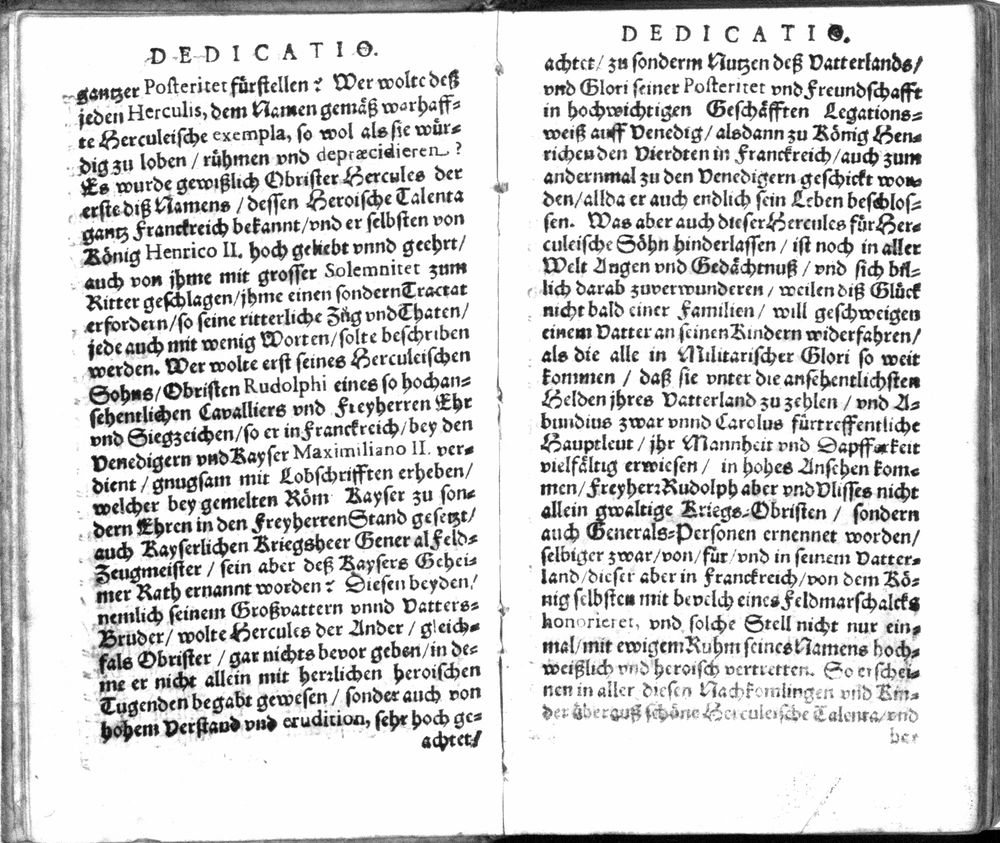 DEDICATIO.
gantzer Posteritet fürstellen? Wer wolte deß
jeden Herculis, dem Namen gemäß warhaff-
te Herculeische exempla, so wol als sie wür-
dig zu loben / rühmen vnd depræcidieren?
Es wurde gewißlich Obrister Hercules der
erste diß Namens / dessen Heroische Talenta
gantz Franckreich bekannt / vnd er selbsten von
König Henrico II. hoch geliebt vnnd geehrt /
auch von jhme mit grosser Solemnitet zum
Ritter geschlagen / jhme einen sondern Tractat
erfordern / so seine ritterliche Züg vnd Thaten /
jede auch mit wenig Worten / solte beschriben
werden. Wer wolte erst seines Herculeischen
Sohns / Obristen Rudolphi eines so hochan-
sehentlichen Cavalliers vnd Freyherren Ehr
vnd Siegzeichen / so er in Franckreich / bey den
Venedigern vnd Kayser Maximiliano II. ver-
dient / gnugsam mit Lobschrifften erheben /
welcher bey gemelten Röm Kayser zu son-
dern Ehren in den Freyherren Stand gesetzt /
auch Kayserlichen Kriegsheer General Feld-
Zeugmeister / sein aber deß Kaysers Gehei-
mer Rath ernannt worden? Diesen beyden /
nemlich seinem Großvattern vnnd Vatters-
Bruder / wolte Hercules der Ander / gleich-
fals Obrister / gar nichts bevor geben / in de-
me er nicht allein mit herrlichen heroischen
Tugenden begabt gewesen / sonder auch von
hohem Verstand vnd erudition, sehr hoch ge-
achtet /
DEDICATIO.
achtet / zu sonderm Nutzen deß Vatterlands /
vnd Glori seiner Posteritet vnd Freundschafft
in hochwichtigen Geschäfften Legations-
weiß auff Venedig / alsdann zu König Hen-
richen den Vierdten in Franckreich / auch zum
andernmal zu den Venedigern geschickt wor-
den / allda er auch endlich sein Leben beschlos-
sen. Was aber auch dieser Hercules für Her-
culeische Söhn hinderlassen / ist noch in aller
Welt Augen vnd Gedächtnuß / vnd sich bil-
lich darab zuverwunderen / weilen diß Glück
nicht bald einer Familien / will geschweigen
einem Vatter an seinen Kindern widerfahren /
als die alle in Militarischer Glori so weit
kommen / daß sie vnter die ansehentlichsten
Helden jhres Vatterland zu zehlen / vnd A-
bundius zwar vnnd Carolus fürtreffentliche
Hauptleut / jhr Mannheit vnd Dapfferkeit
vielfältig erwiesen / in hohes Ansehen kom-
men / Freyherr Rudolph aber vnd Vlisses nicht
allein gwaltige Kriegs-Obristen / sondern
auch Generals-Personen ernennet worden /
selbiger zwar / von / für / vnd in seinem Vatter-
land / dieser aber in Franckreich / von dem Kö-
nig selbsten mit bevelch eines Feldmarschalcks
honorieret, vnd solche Stell nicht nur ein-
mal / mit ewigem Ruhm seines Namens hoch-
weißlich vnd heroisch vertretten. So erschei-
nen in aller diesen Nachkomlingen vnd Kin-
der überauß schöne Herculeische Talenta / vnd
her